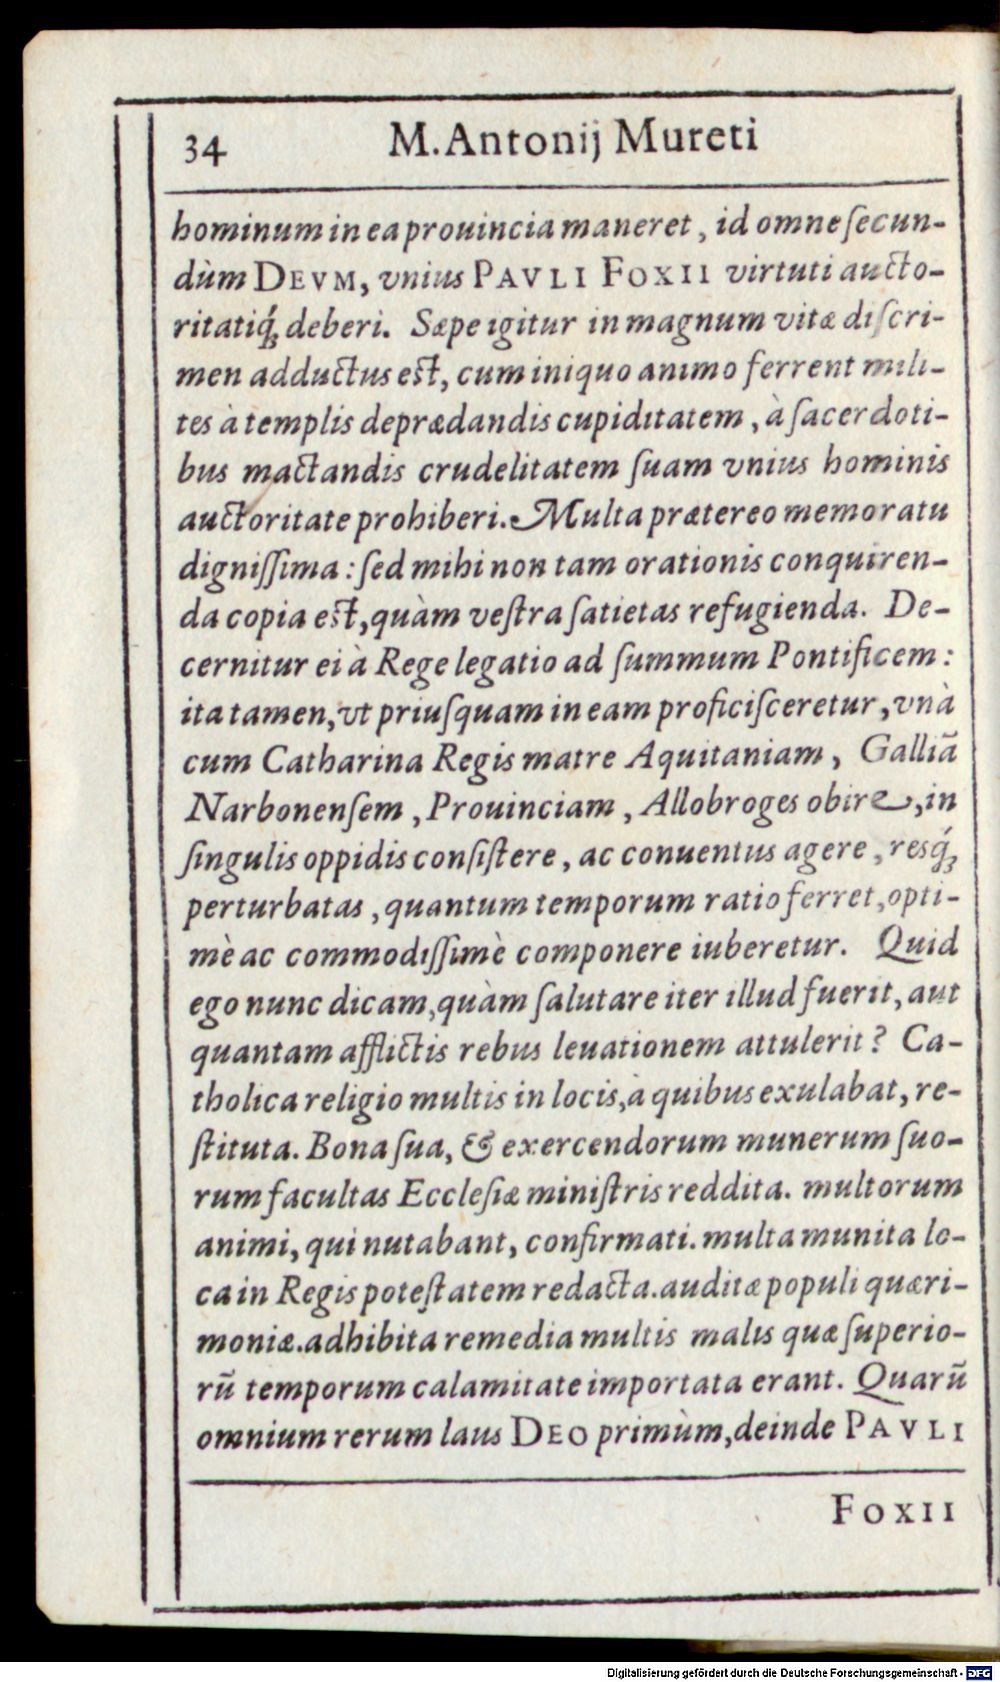 34 M. Antonij Mureti
hominum in ea prouincia maneret, id omne ſecun-
dùm DEVM, vnius PAVLI FOXII virtuti aucto-
ritatiq́ꝫ deberi. Sæpe igitur in magnum vitæ diſcri-
men adductus est, cum iniquo animo ferrent mili-
tes à templis deprædandis cupiditatem, à ſacerdoti-
bus mactandis crudelitatem ſuam vnius hominis
auctoritate prohiberi. Multa prætereo memoratu
digniſſima: ſed mihi non tam orationis conquiren-
da copia est, quàm veſtra ſatietas refugienda. De-
cernitur ei à Rege legatio ad ſummum Pontificem:
ita tamen, vt priuſquam in eam proficiſceretur, vnà
cum Catharina Regis matre Aquitaniam, Galliã
Narbonenſem, Prouinciam, Allobroges obire, in
ſingulis oppidis conſiſtere, ac conuentus agere, resq́ꝫ
perturbatas, quantum temporum ratio ferret, opti-
mè ac commodiſſimè componere iuberetur. Quid
ego nunc dicam, quàm ſalutare iter illud fuerit, aut
quantam afflictis rebus leuationem attulerit? Ca-
tholica religio multis in locis, à quibus exulabat, re-
ſtituta. Bona ſua, & exercendorum munerum ſuo-
rum facultas Eccleſiæ miniſtris reddita. multorum
animi, qui nutabant, confirmati. multa munita lo-
ca in Regis poteſtatem redacta. auditæ populi quæri-
moniæ. adhibita remedia multis malis quæ ſuperio-
rũ temporum calamitate importata erant. Quarũ
omnium rerum laus DEO primùm, deinde PAVLI
FOXII
Digitalisierung gefördert durch die Deutsche Forschungsgemeinschaft - DFG